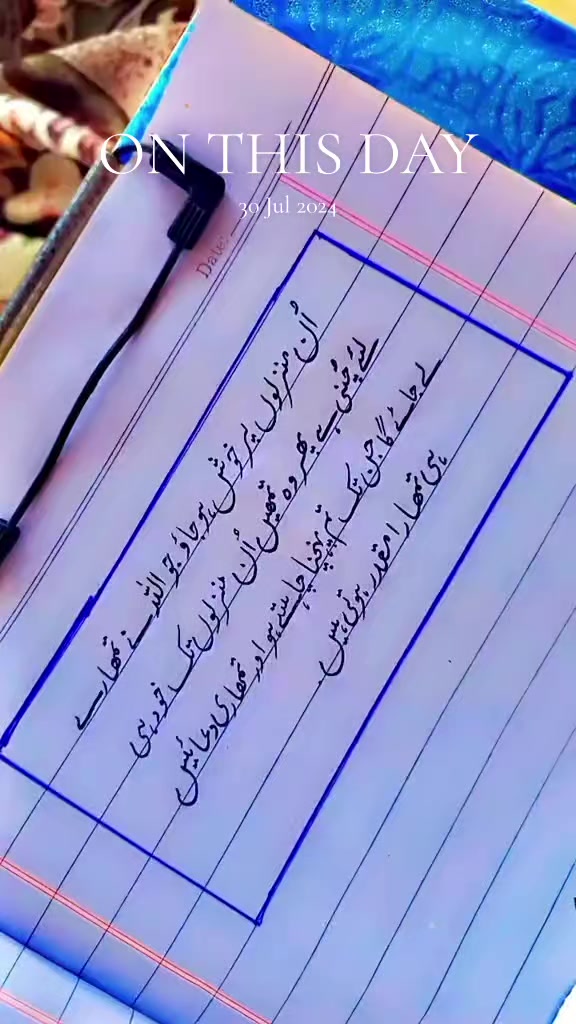 ON THIS DAY
30 Jul 2024
Date:
اُن منزلوں پر خوش ہو جاؤ جو اللہ نے تمھارے
لئے چُنی ہے پھر وہ تمھیں اُن منزلوں تک خود ہی
لے جائے گا جن تک تم پہنچنا چاہتے ہو اور تمھاری دعائیں
ہی تمھارا مقدر ہوتی ہیں.